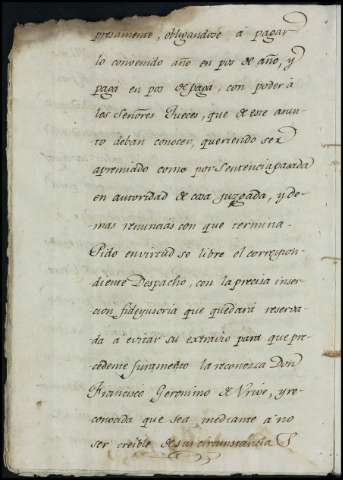 presamente, obligandose á pagar
lo convenido año en pos de año, y
paga en pos de paga, con poder á
los Señores Jueces, que de este asun-
to deban conocer, queriendo ser
apremiado como por Sentencia pasada
en autoridad de cosa juzgada, y de-
mas renuncias con que termina.
Pido en virtud se libre el correspon-
diente Despacho, con la precisa inser-
cion fideyusoria que quedará reserva-
da á evitar su extravio para que pre-
cedente juramento la reconozca Don
Francisco Geronimo de Urive, y re-
conocida que sea mediante á no
ser creible de sus circunstancias